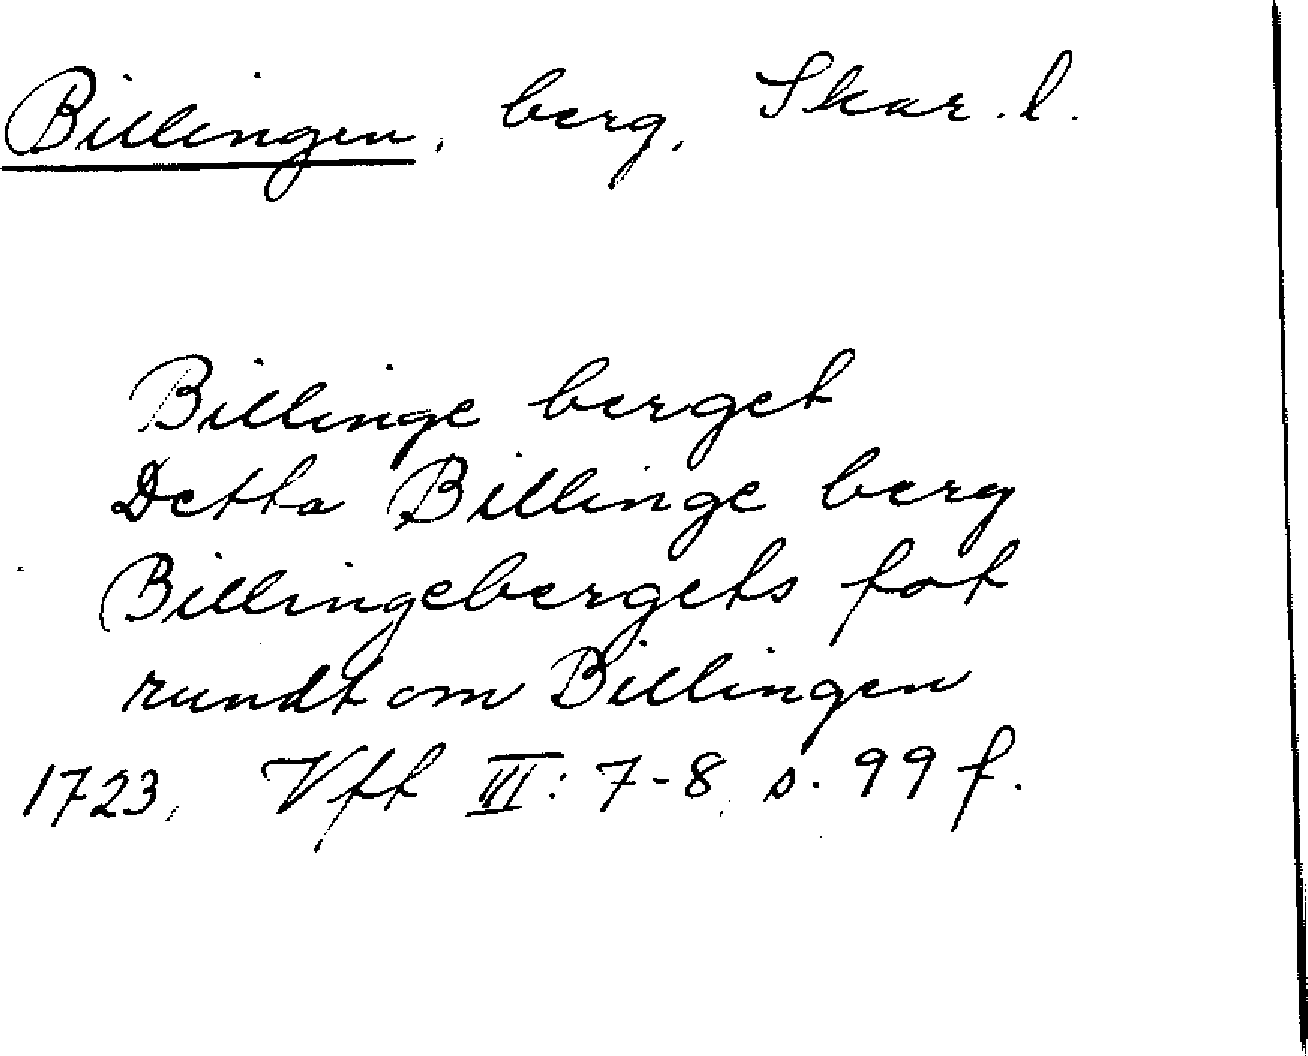 Billingen, berg, Skar. l.
Billinge berget
Detta Billinge berg
Billingebergets fot
rundt om Billingen
1723, Vft III: 7-8, s. 99 f.